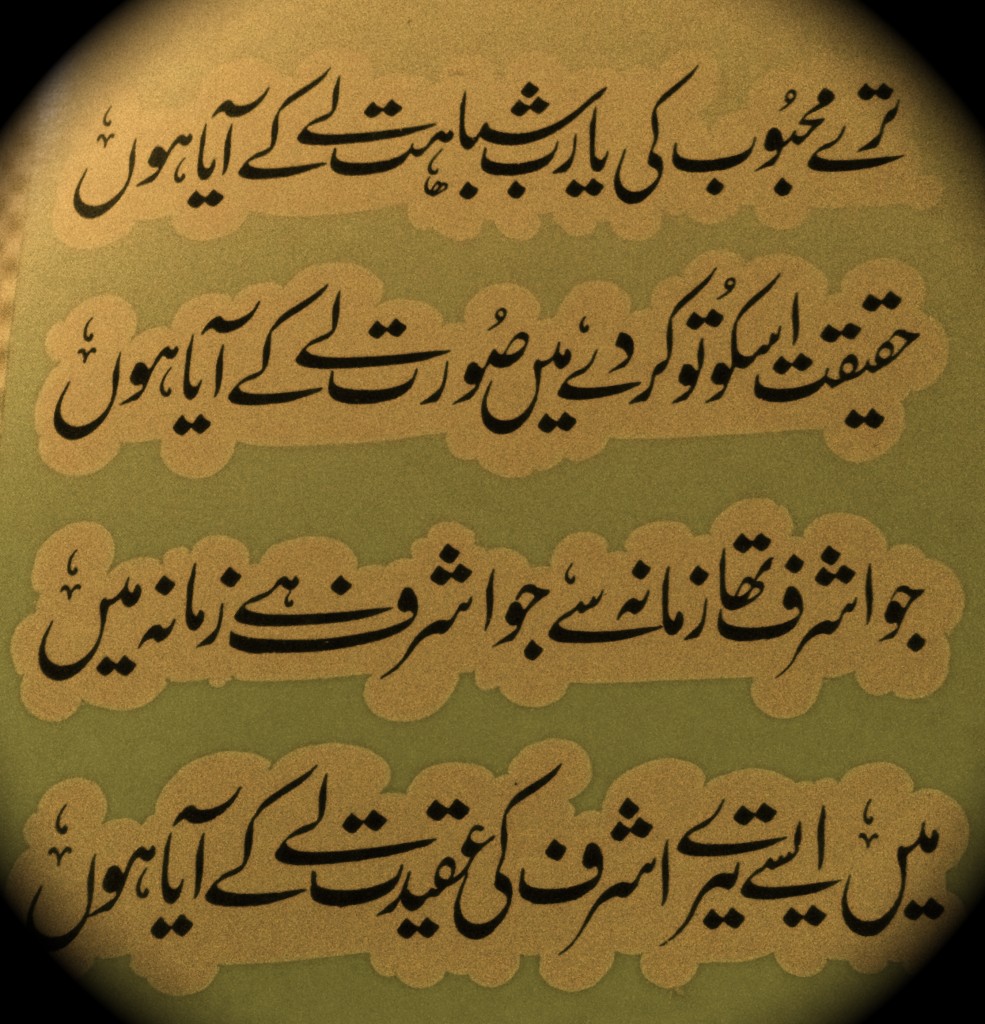 ترے محبُوب کی یارب شباہت لے کے آیا ہوں
حقیقت اسکُو تو کر دے میں صُورت لے کے آیا ہوں
جو اشرف تھا زمانہ سے جو اشرف ہے زمانہ میں
میں ایسے تیرے اشرف کی عقیدت لے کے آیا ہوں